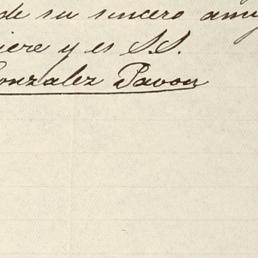 de su sincero amig
iere y es S.S.
onzalez Pavon